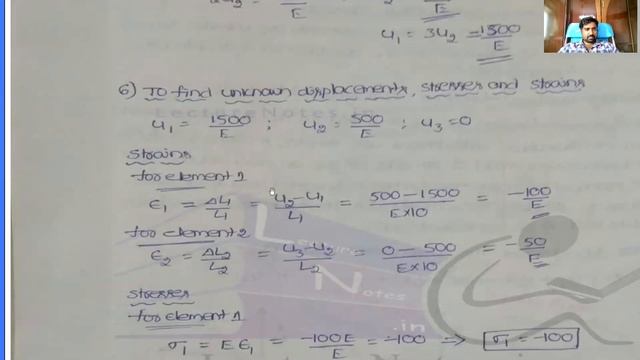 E
E
u₁ = 3u₂ = 1500/E
6) To find unknown displacements, stresses and strains
u₁ = 1500/E ; u₂ = 500/E ; u₃ = 0
Strains
for element 1
ε₁ = ΔL₁/L₁ = u₂-u₁/L₁ = 500-1500/E×10 = -100/E
for element 2
ε₂ = ΔL₂/L₂ = u₃-u₂/L₂ = 0-500/E×10 = -50/E
Stresses
for element 1
σ₁ = Eε₁ = -100E/E = -100 ⟹ σ₁ = -100
Lecture
Notes
.in
LectureNotes.in